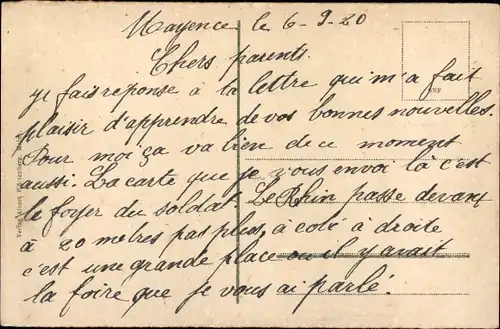 Mayence le 6-9-20
Chers parents.
je fais réponse à la lettre qui m'a fait
plaisir d'apprendre de vos bonnes nouvelles.
Pour moi ça va bien de ce moment
aussi. La carte que je vous envoi là c'est
le foyer du soldat Le Rhin passe devant
à 20 mètres pas plus, à coté à droite
c'est une grande place ou il y avait
la foire que je vous ai parlé.